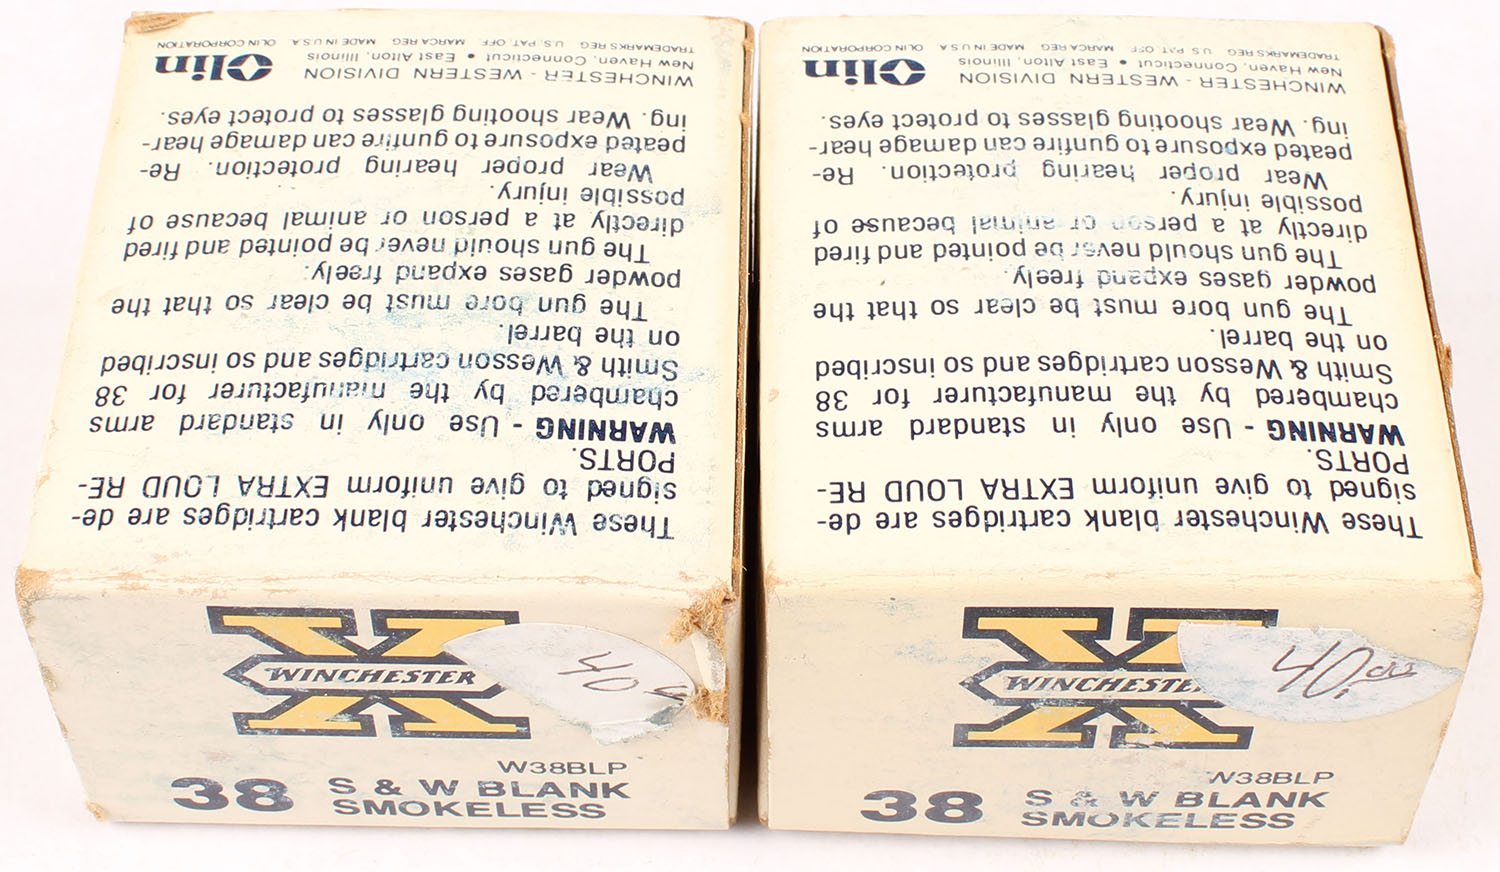 These Winchester blank cartridges are de-
signed to give uniform EXTRA LOUD RE-
PORTS.
WARNING - Use only in standard arms
chambered by the manufacturer for 38
Smith & Wesson cartridges and so inscribed
on the barrel.
The gun bore must be clear so that the
powder gases expand freely.
The gun should never be pointed and fired
directly at a person or animal because of
possible injury.
Wear proper hearing protection. Re-
peated exposure to gunfire can damage hear-
ing. Wear shooting glasses to protect eyes.
WINCHESTER - WESTERN DIVISION
New Haven, Connecticut • East Alton, Illinois
Olin
TRADEMARKS REG. U.S. PAT. OFF. MARCA REG. MADE IN U.S.A. OLIN CORPORATION
WINCHESTER
40
W38BLP
38 S & W BLANK
SMOKELESS
These Winchester blank cartridges are de-
signed to give uniform EXTRA LOUD RE-
PORTS.
WARNING - Use only in standard arms
chambered by the manufacturer for 38
Smith & Wesson cartridges and so inscribed
on the barrel.
The gun bore must be clear so that the
powder gases expand freely.
The gun should never be pointed and fired
directly at a person or animal because of
possible injury.
Wear proper hearing protection. Re-
peated exposure to gunfire can damage hear-
ing. Wear shooting glasses to protect eyes.
WINCHESTER - WESTERN DIVISION
New Haven, Connecticut • East Alton, Illinois
Olin
TRADEMARKS REG. U.S. PAT. OFF. MARCA REG. MADE IN U.S.A. OLIN CORPORATION
WINCHESTE
40.00
W38BLP
38 S & W BLANK
SMOKELESS